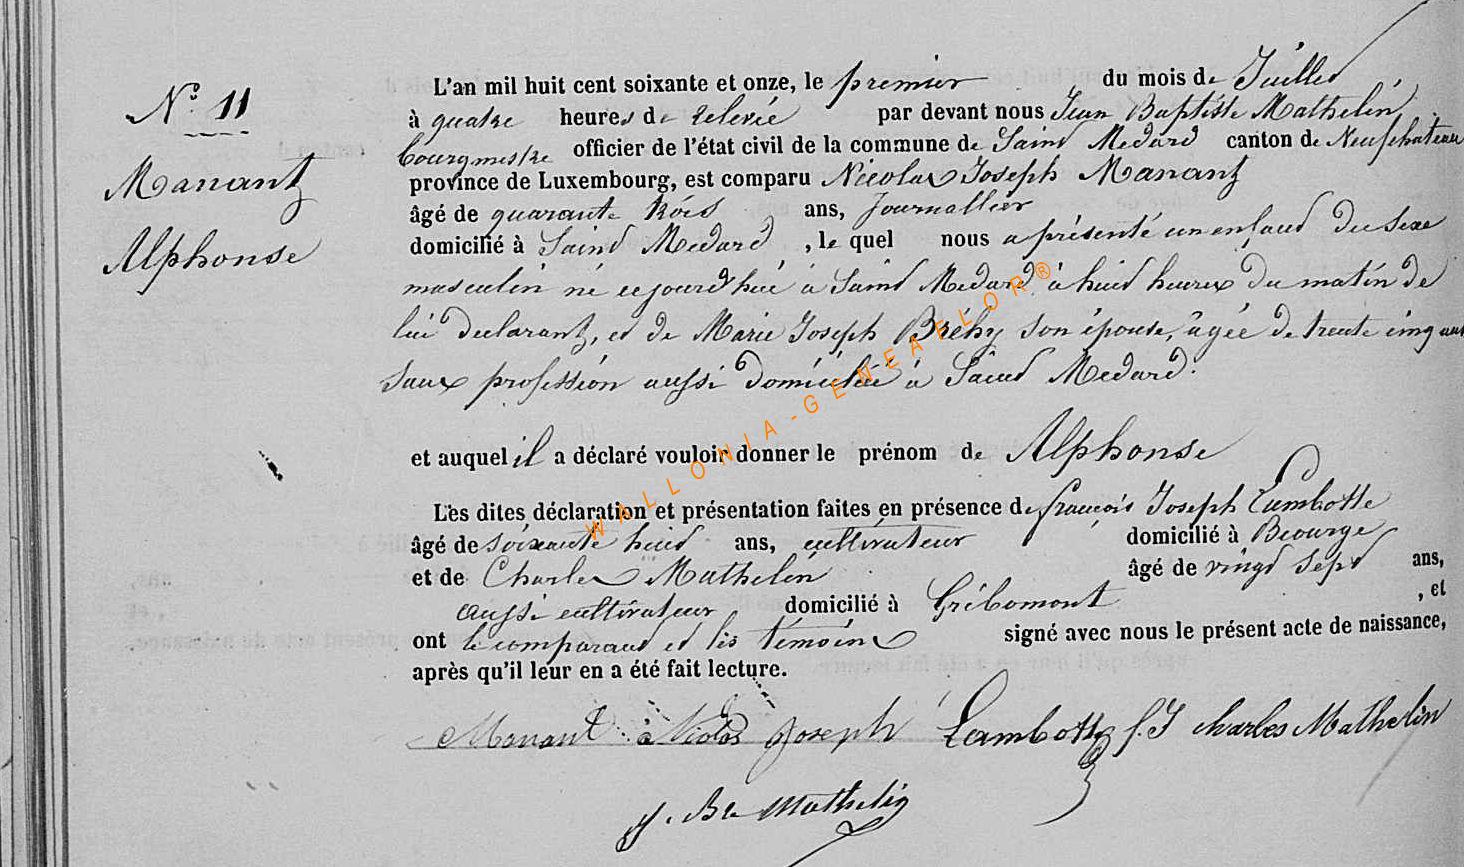 N° 11
Manant
Alphonse
L'an mil huit cent soixante et onze, le premier du mois de Juillet
à quatre heures de relevée par devant nous Jean Baptiste Mathelin
bourgmestre officier de l'état civil de la commune de Saint Medard canton de Neufchateau
province de Luxembourg, est comparu Nicolas Joseph Manant
âgé de quarante trois ans, Journallier
domicilié à Saint Medard, le quel nous a présenté un enfant du sexe
masculin né cejourd'hui à Saint Medard à huit heures du matin de
lui declarant, et de Marie Joseph Bréhy son épouse, âgée de trente cinq ans
sans profession aussi domiciliée à Saint Medard.
et auquel il a déclaré vouloir donner le prénom de Alphonse
Les dites déclaration et présentation faites en présence de françois Joseph Lambotte
âgé de soixante huit ans, cultivateur domicilié à
et de Charles Mathelin âgé de vingt sept ans,
aussi cultivateur domicilié à Gribomont, et
ont le comparant et les témoins signé avec nous le présent acte de naissance,
après qu'il leur en a été fait lecture.
Manant Nicolas Joseph Lambotte f. J charles Mathelin
J. Bte Mathelin
WALLONIA-GENEAFLOR®